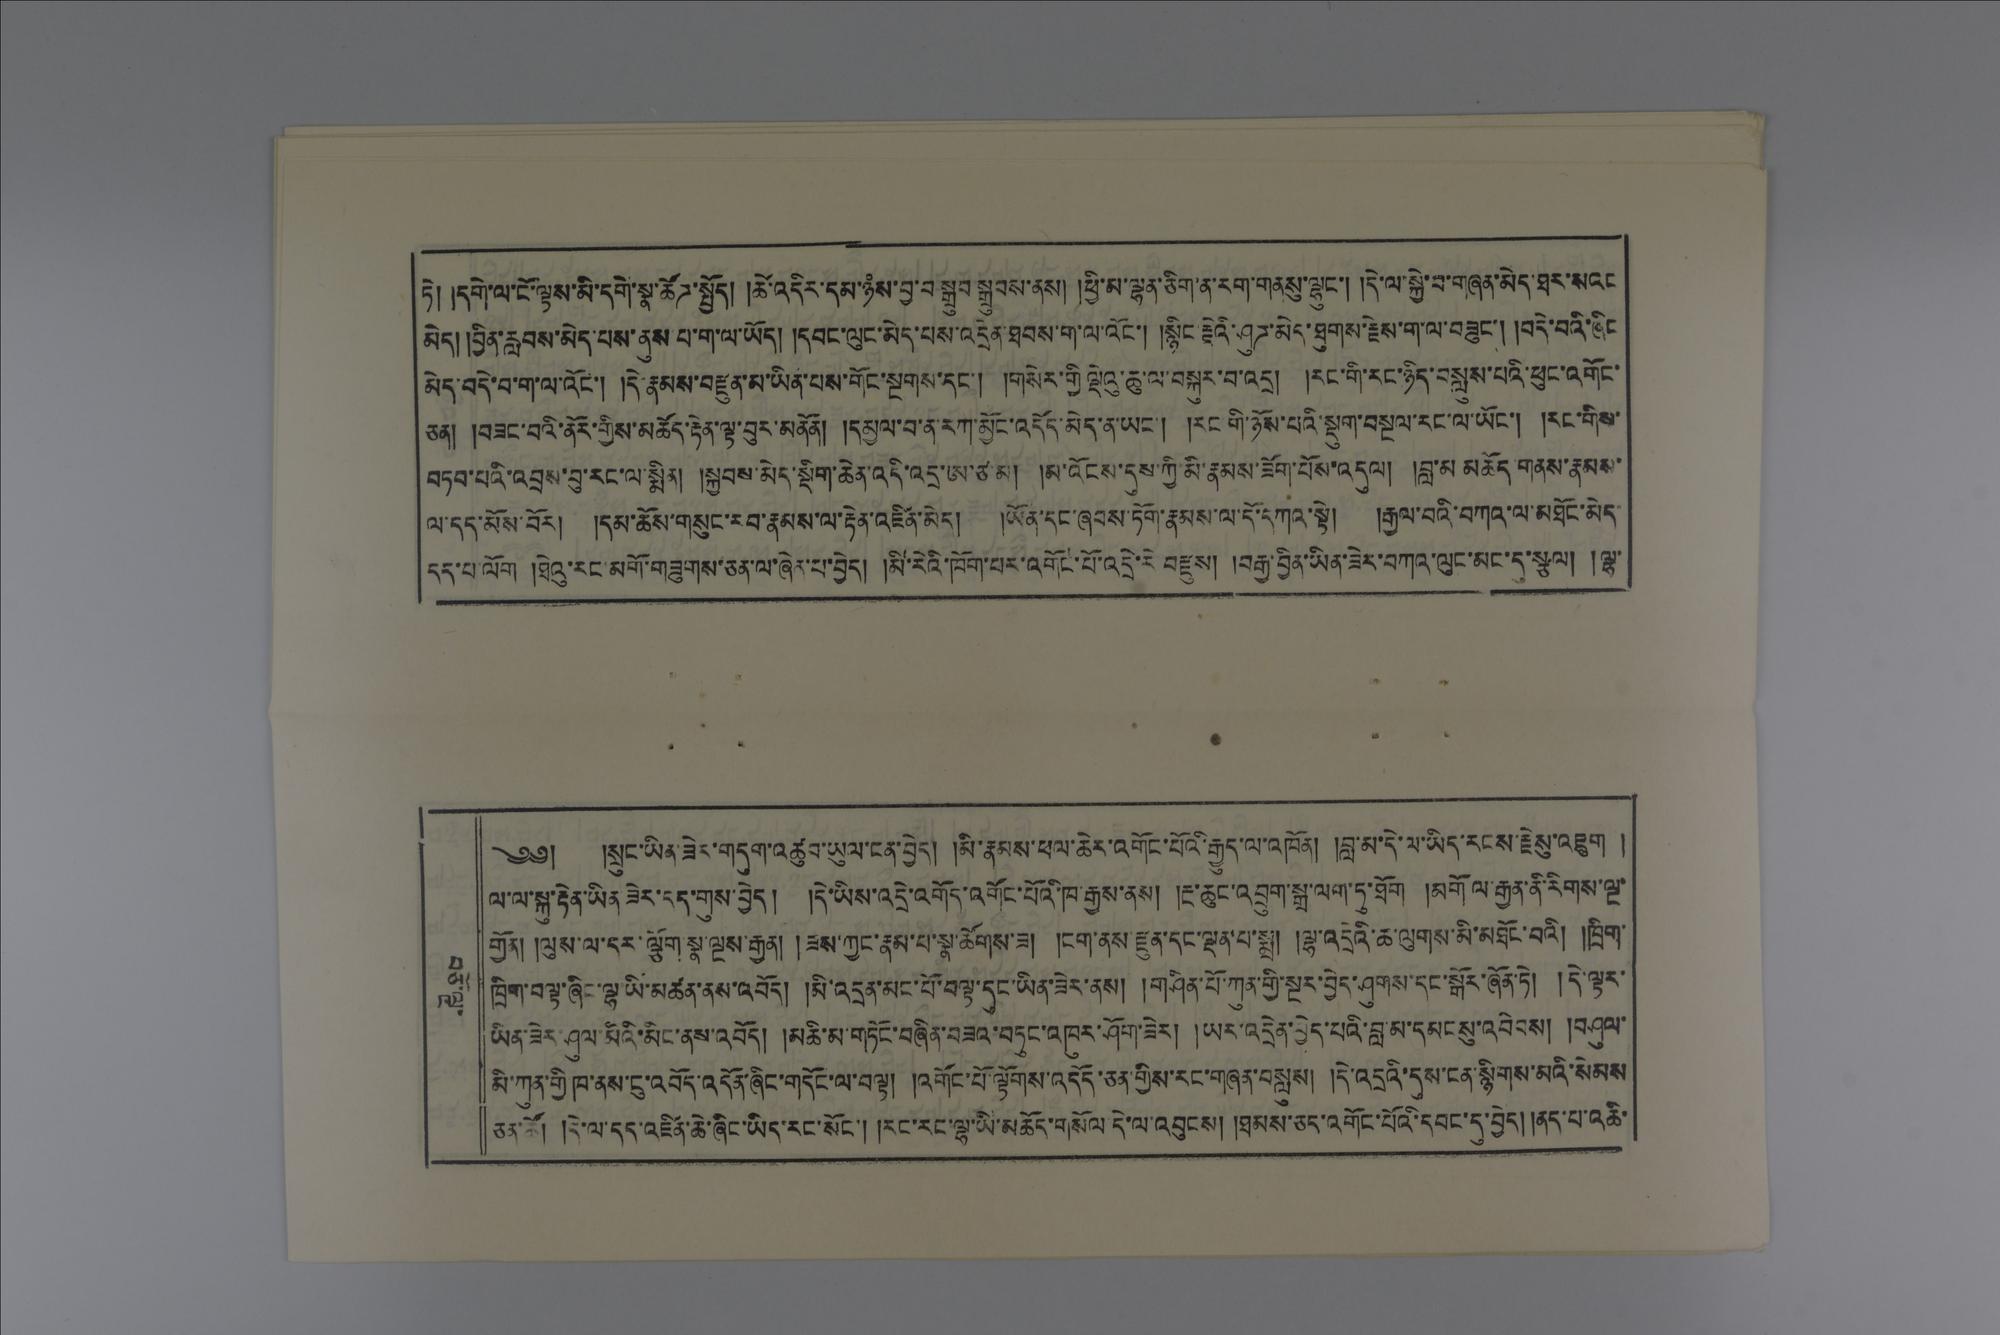 ཏེ། །དགེ་ལ་ངོ་ལྟས་མི་དགེ་སྣ་ཚོར་སྤྱོད། །ཚེ་འདིར་དམ་ཉམས་བྱ་བ་སྒྲུབ་སྒྲུབས་ནས། །ཕྱི་མ་ལྷན་ཅིག་ན་རག་གནསུ་ལྷུང་། །དེ་ལ་སྐྱེ་བ་གཞན་མེད་ཐར་སའང
མེད། །བྱིན་རླབས་མེད་པས་ནུས་པ་ག་ལ་ཡོད། །དབང་ལུང་མེད་པས་འདྲེན་ཐབས་ག་ལ་འོང་། །སྙིང་རྗེའི་ཤུར་མེད་ཐུགས་རྗེས་ག་ལ་བཟུང་། །བདེ་བའི་ཞིང
མེད་བདེ་བ་ག་ལ་འོང་། །དེ་རྣམས་བརྫུན་མ་ཡིན་པས་གོང་སྔགས་དང་། །གསེར་གྱི་ལྡེའུ་ཆུ་ལ་བསྐུར་བ་འདྲ། །རང་གི་རང་ཉིད་བསླུས་པའི་ཕུང་འགོང་
ཅན། །བཟང་བའི་ནོར་གྱིས་མཚོད་རྟེན་ལྟ་བུར་མནོན། །དམྱལ་བ་ན་རཀ་མྱོང་འདོད་མེད་ན་ཡང་། །རང་གི་ཉེས་པའི་སྡུག་བསྔལ་རང་ལ་ཡོང་། །རང་གིས་
བཏབ་པའི་འབྲས་བུ་རང་ལ་སྨིན། །སྐྱབས་མེད་སྡིག་ཆེན་འདི་འདྲ་ཨ་ཙ་མ། །མ་འོངས་དུས་ཀྱི་མི་རྣམས་ཟོག་པོས་འདུལ། །བླ་མ་མཆོད་གནས་རྣམས་
ལ་དད་མོས་བོར། །དམ་ཆོས་གསུང་རབ་རྣམས་ལ་རྟེན་འཛིན་མེད། །ཡོན་དང་ཞབས་ཏོག་རྣམས་ལ་དོ་དཀའ་སྟེ། །རྒྱལ་བའི་བཀའ་ལ་མཐོང་མེད
དད་པ་ལོག །ཐེའུ་རང་མགོ་གཟུགས་ཅན་ལ་ཞེན་པ་བྱེད། །མི་རེའི་ཁོག་པར་འགོང་པོ་འདྲེ་རེ་བརྫུས། །བརྒྱ་བྱིན་ཡིན་ཟེར་བཀའ་ལུང་མང་དུ་སྩུལ། །ལྷ་
༄༅། །སྲུང་ཡིན་ཟེར་གདུག་འཚུབ་ཡུལ་ངན་བྱེད། །མི་རྣམས་ཕལ་ཆེར་འགོང་པོའི་རྒྱུད་ལ་འཁོན། །བླ་མ་དེ་ལ་ཡིད་རངས་རྗེསུ་འཇུག །
ལ་ལ་སྐུ་རྟེན་ཡིན་ཟེར་དད་གུས་བྱེད། །དེ་ཡིས་འདྲེ་འགོད་འགོང་པོའི་ཁ་རྒྱས་ནས། །རྔ་ཆུང་འབྲུག་སྒྲ་ལག་ཏུ་ཐོག །མགོ་ལ་རྒྱན་ནི་རིགས་ལྔ་
གྱོན། །ལུས་ལ་དར་ལྕོག་སྣ་ལྔས་རྒྱན། །ཟས་ཀྱང་རྣམ་པ་སྣ་ཚོགས་ཟ། །ངག་ནས་རྫུན་དང་ལྡན་པ་སྨྲ། །ལྷ་འདྲེའི་ཆ་ལུགས་མི་མཐོང་བའི། །ཁྲིག་
ཁྲིག་བལྟ་ཞིང་ལྷ་ཡི་མཚན་ནས་འབོད། །མི་འདྲན་མང་པོ་བལྟ་དུང་ཡིན་ཟེར་ནས། །གཤིན་པོ་ཀུན་གྱི་སྔར་བྱེད་ཤུགས་དང་སྒོར་ཞོན་ཏེ། །དེ་ལྟར་
ཡིན་ཟེར་ཤུལ་མིའི་མིང་ནས་འབོད། །མཆི་མ་གཏོང་བཞིན་བཟའ་བཏུང་འཁུར་ཤོག་ཟེར། །ཡར་འདྲེན་བྱེད་པའི་བླ་མ་དམངསུ་འབེབས། །བཤུལ་
མི་ཀུན་གྱི་ཁ་ནས་ངུ་འབོད་འདོན་ཞིང་གདོང་ལ་བལྟ། །འགོང་པོ་ལྟོགས་འདོད་ཅན་གྱིས་རང་གཞན་བསླུས། །དེ་འདྲའི་དུས་ངན་སྙིགས་མའི་སེམས
ཅན་ཚོ། །དེ་ལ་དད་འཛིན་ཆེ་ཞིང་ཡིད་རང་སོང་། །རང་རང་ལྷ་ཡི་མཆོད་གསོལ་དེ་ལ་འབུངས། །ཐམས་ཅད་འགོང་པོའི་དབང་དུ་བྱེད། །ནད་པ་འཆི་